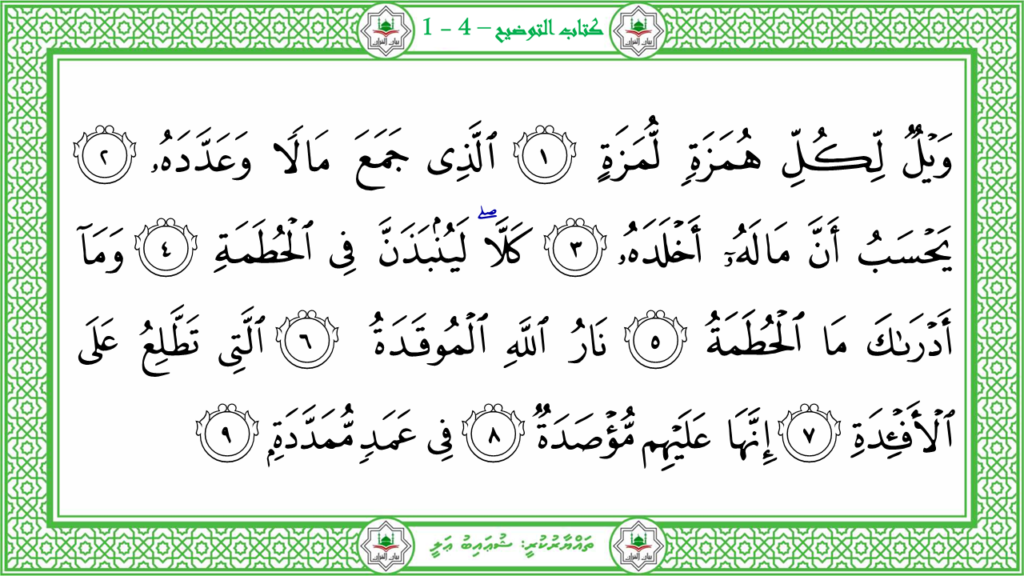 كتاب التوضيح – 4 - 1
وَيْلٌ لِّكُلِّ هُمَزَةٍ لُّمَزَةٍ ١ ٱلَّذِى جَمَعَ مَالًا وَعَدَّدَهُۥ ٢
يَحْسَبُ أَنَّ مَالَهُۥٓ أَخْلَدَهُۥ ٣ كَلَّا ۖ لَيُنۢبَذَنَّ فِى ٱلْحُطَمَةِ ٤ وَمَآ
أَدْرَىٰكَ مَا ٱلْحُطَمَةُ ٥ نَارُ ٱللَّهِ ٱلْمُوقَدَةُ ٦ ٱلَّتِى تَطَّلِعُ عَلَى
ٱلْأَفْـِٔدَةِ ٧ إِنَّهَا عَلَيْهِم مُّؤْصَدَةٌ ٨ فِى عَمَدٍ مُّمَدَّدَةٍۭ ٩
ތައްޔާރުކުރީ: ޝުޢައިބު ޢަލީ